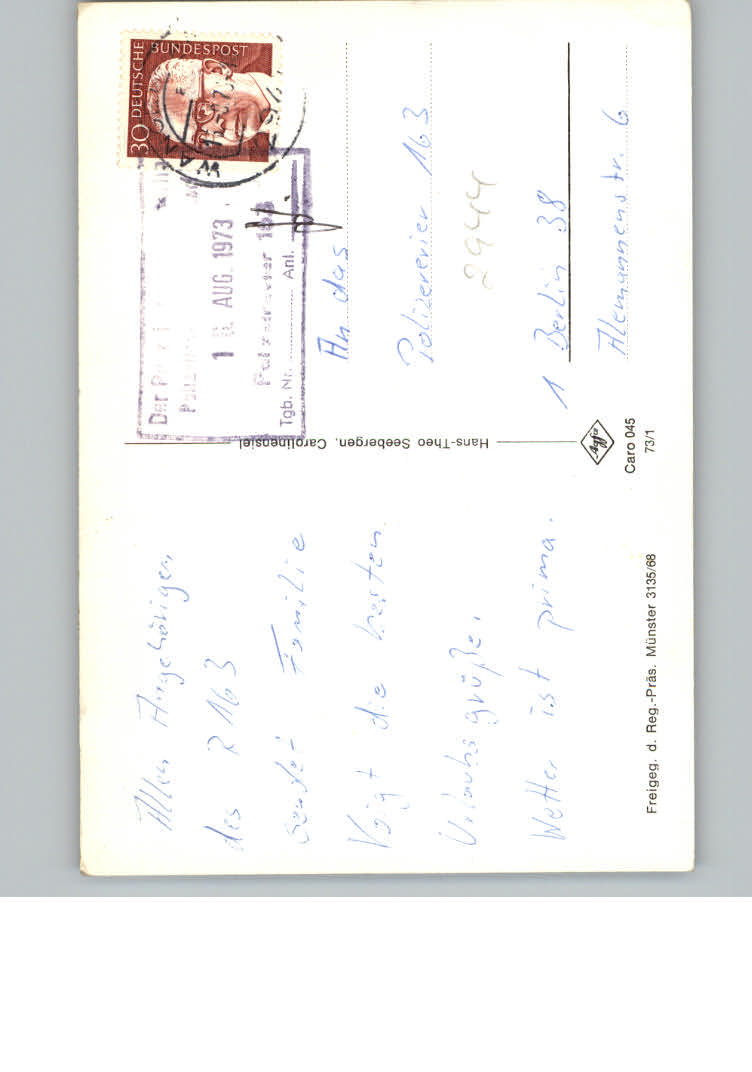 Allen Angehörigen
des R 163
sendet Familie
Voigt die besten
Urlaubsgrüße.
Wetter ist prima.
Freigeg. d. Reg.-Präs. Münster 3135/68
Hans-Theo Seebergen, Carolinensiel
Agfa
Caro 045
73/1
30 DEUTSCHE BUNDESPOST
Der
1 AUG. 1973
Polizeirevier 163
Tgb. Nr. Anl.
An das
Polizeirevier 163
2944
1 Berlin 38
Alemannenstr. 6